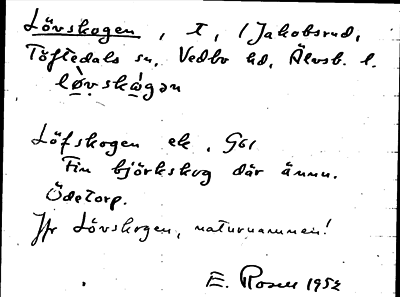 Lövskogen, t, / Jakobsrud,
Töftedals sn, Vedbo hd, Älvsb. l.
Löfskogen ek. G61
Fin björkskog där ännu.
Ödetorp.
Jfr Lövskogen, naturnamnen!
E. Rosell 1952